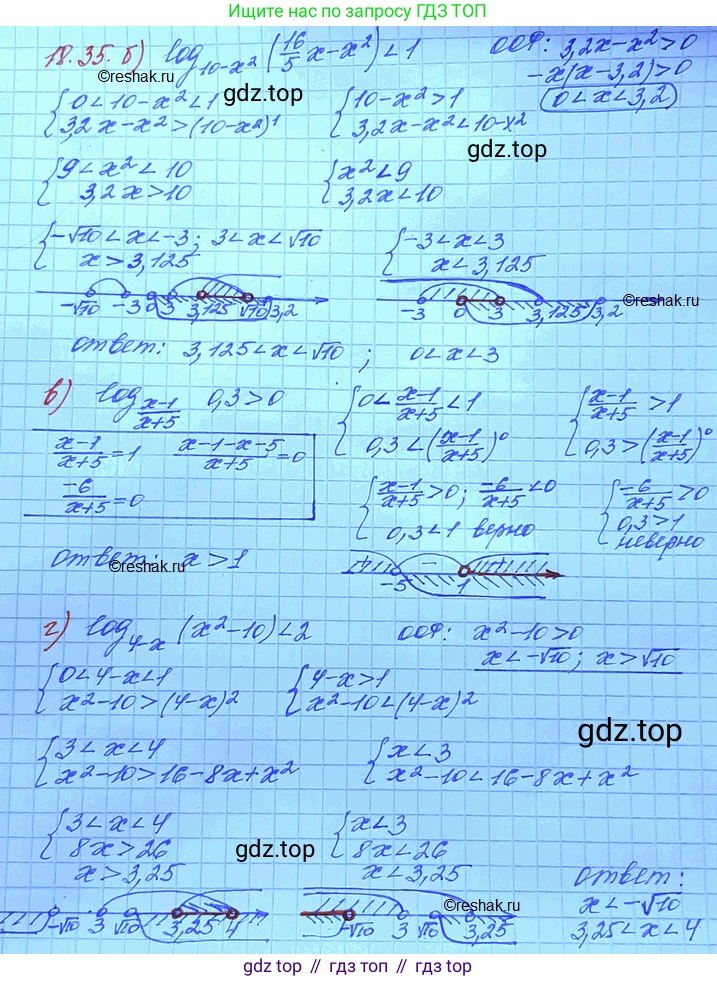 Ищите нас по запросу ГДЗ ТОП
18.35. б) log_{10-x²} (16/5 x - x²) < 1
ООФ: 3,2x - x² > 0
-x(x - 3,2) > 0
0 < x < 3,2
{ 0 < 10 - x² < 1
3,2x - x² > (10 - x²)¹
{ 10 - x² > 1
3,2x - x² < 10 - x²
©reshak.ru
gdz.top
gdz.top
{ 9 < x² < 10
3,2x > 10
{ x² < 9
3,2x < 10
{ -√10 < x < -3; 3 < x < √10
x > 3,125
{ -3 < x < 3
x < 3,125
-√10 -3 0 3 3,125 √10 3,2
-3 0 3 3,125 3,2
©reshak.ru
ответ: 3,125 < x < √10 ; 0 < x < 3
в) log_{(x-1)/(x+5)} 0,3 > 0
{ 0 < (x-1)/(x+5) < 1
0,3 < ((x-1)/(x+5))⁰
{ (x-1)/(x+5) > 1
0,3 > ((x-1)/(x+5))⁰
(x-1)/(x+5) = 1 (x-1-x-5)/(x+5) = 0
-6/(x+5) = 0
{ (x-1)/(x+5) > 0; -6/(x+5) < 0
0,3 < 1 верно
{ -6/(x+5) > 0
0,3 > 1
неверно
ответ: x > 1
©reshak.ru
+ - +
-5 1
г) log_{4-x} (x² - 10) < 2
ООФ: x² - 10 > 0
x < -√10; x > √10
{ 0 < 4 - x < 1
x² - 10 > (4 - x)²
{ 4 - x > 1
x² - 10 < (4 - x)²
gdz.top
{ 3 < x < 4
x² - 10 > 16 - 8x + x²
{ x < 3
x² - 10 < 16 - 8x + x²
{ 3 < x < 4
8x > 26
x > 3,25
{ x < 3
8x < 26
x < 3,25
gdz.top
ответ:
x < -√10
3,25 < x < 4
©reshak.ru
-√10 3 √10 3,25 4
-√10 3 √10 3,25
gdz top // гдз топ // gdz.top